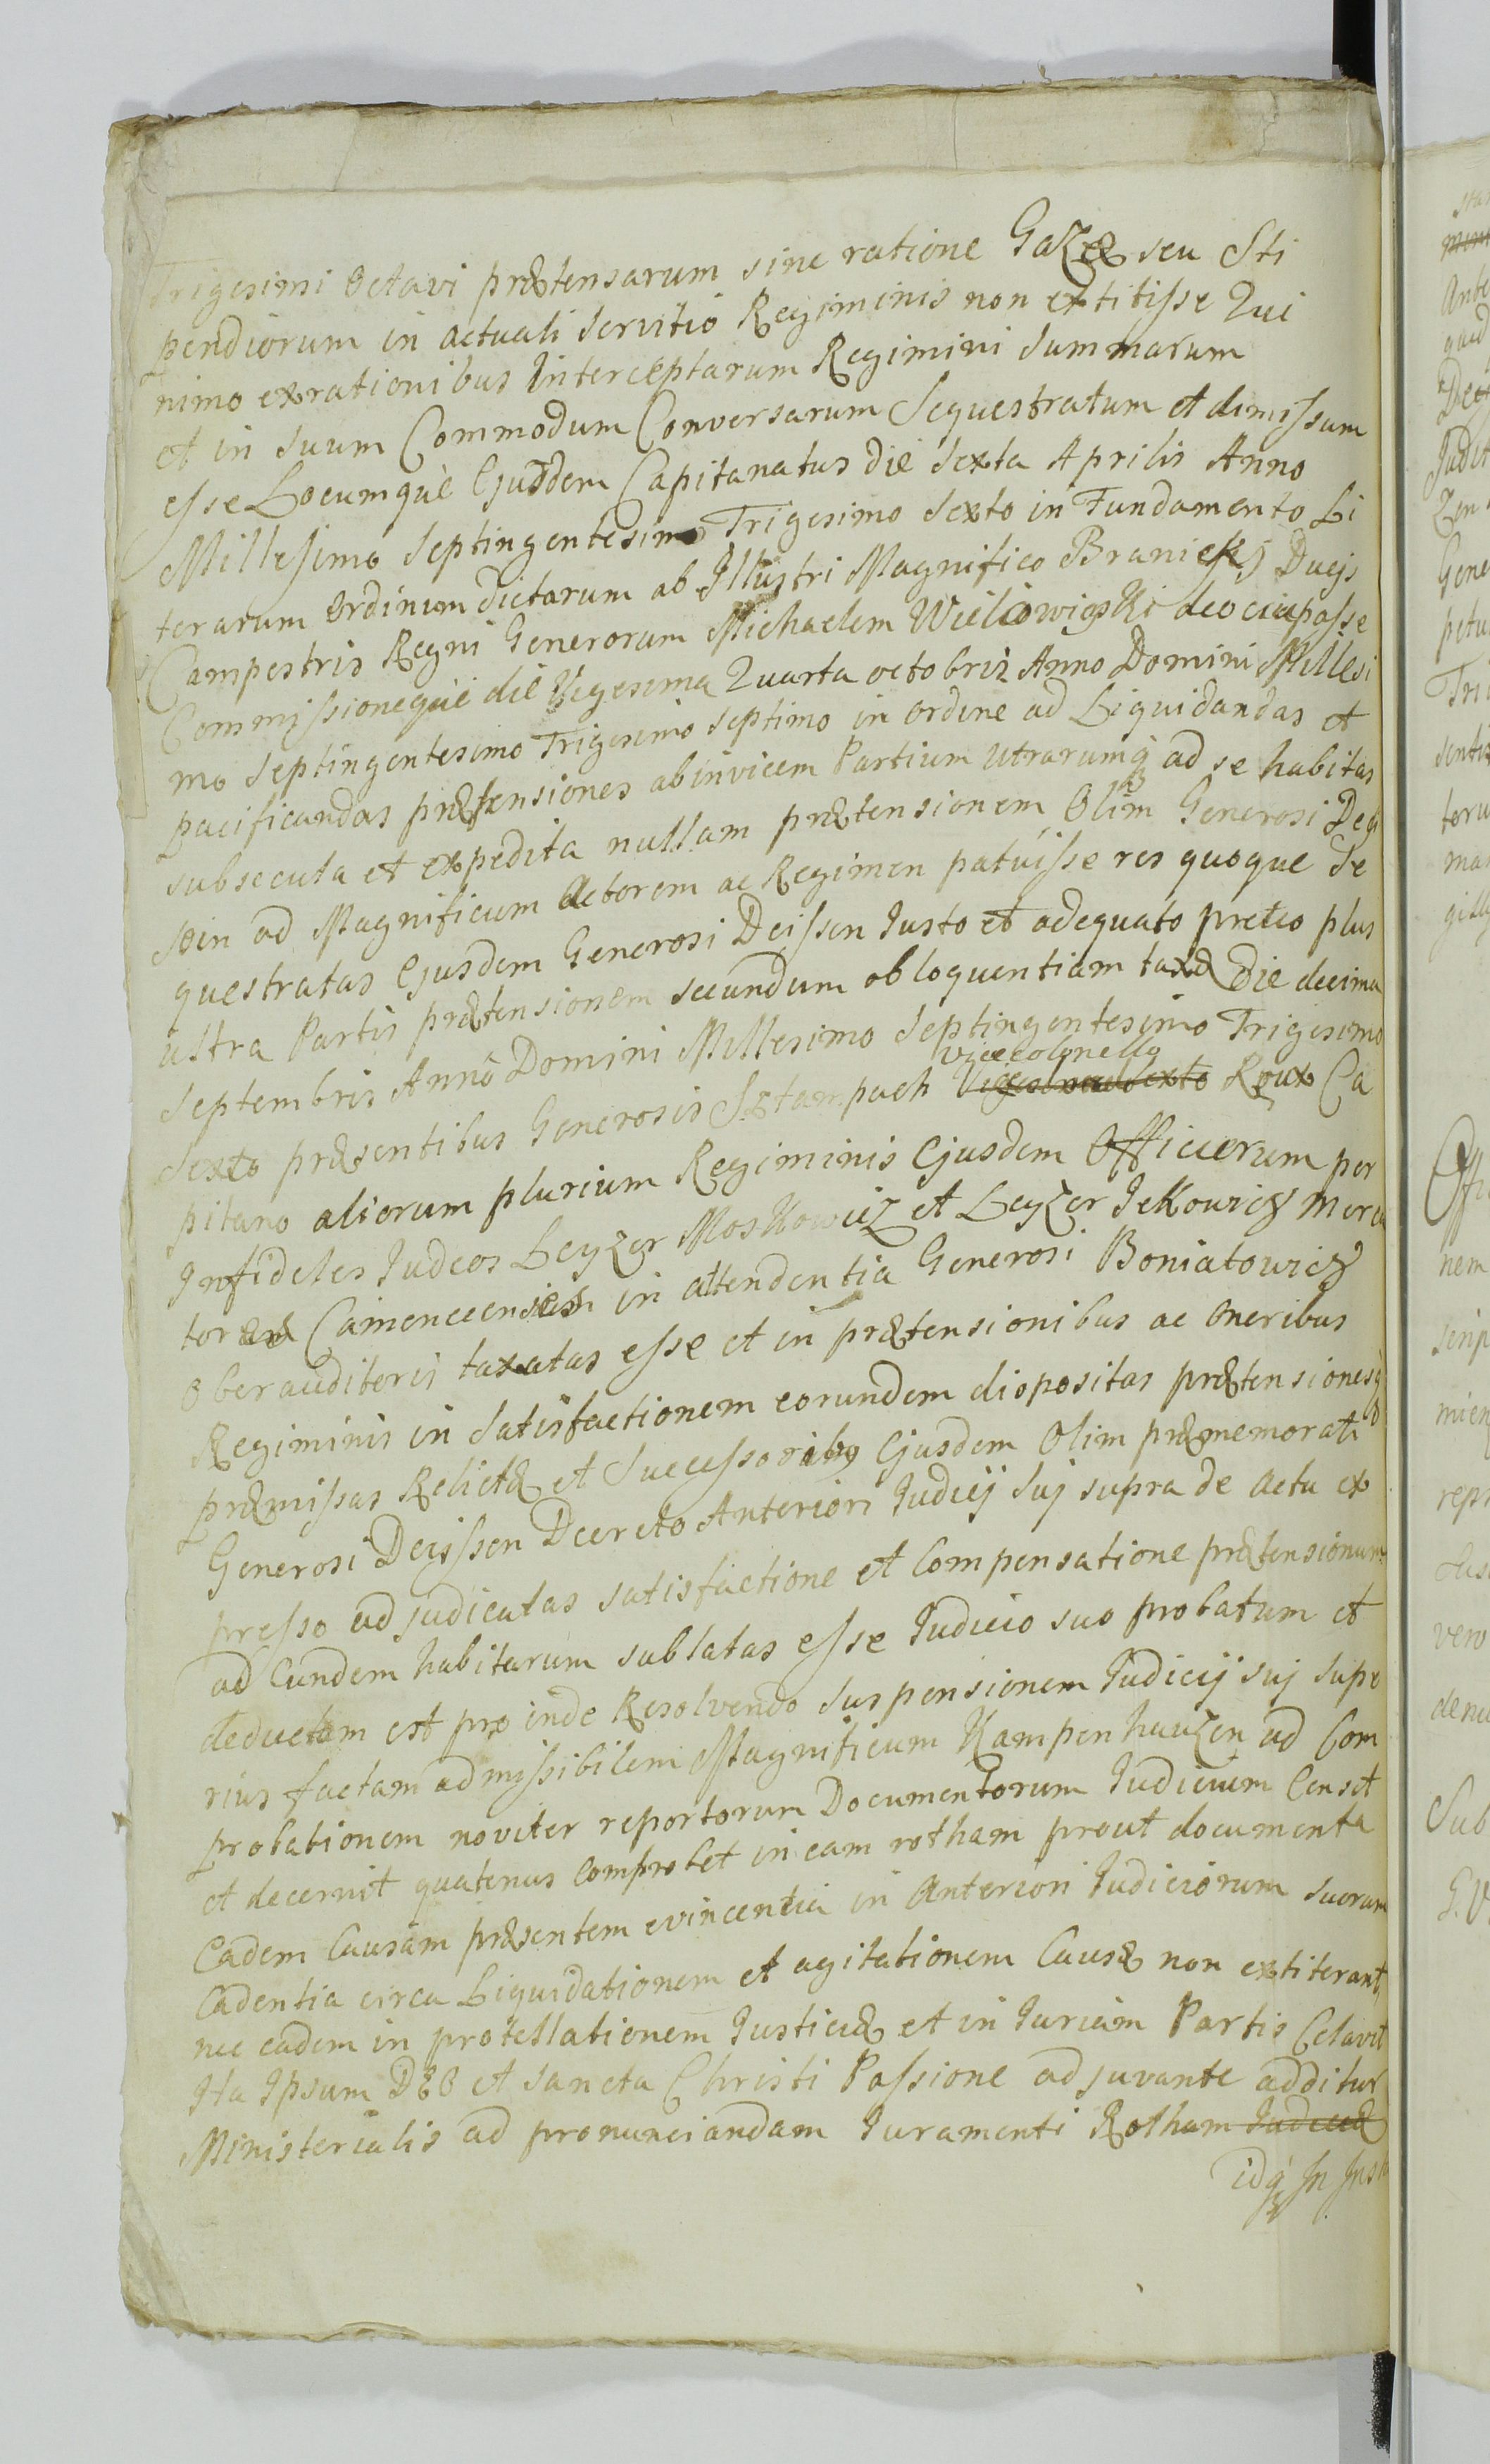 Trigesimi Octavi prætensarum sine ratione Gazæ seu Sti
pendiorum in actuali Servitio Regiminis non extitisse Qui
nimo exrationibus Interceptarum Regimini Summarum
et in Suum Commodum Conversarum Sequestratum et dimissum
esse Locumquè Ejusdem Capitanatus die Sexta Aprilis Anno
Millesimo Septingentesimo Trigesimo Sexto in Fundamento Li
terarum Ordinum dictarum ab Illustri Magnifico Branicki Ducis
Campestris Regni Generorum Michaelem Wieliowieyski
Commissionequè die Vigesima Quarta octobris Anno Domini Millesi
mo Septingentesimo Trigesimo Septimo in ordine ad Liquidandas et
pacificandas prætensiones abinvicem Partium Utrarumq ad se habitas
subsecuta et expedita nullam prætensionem Olim Generosi Dej
ssen ad Magnificum Actorem ac Regimen patuisse res quoque Se
questratas Ejusdem Generosi Deissen Justo et adequato pretio plus
ultra Partis prætensionem secundum obloquentiam taxæ die decima
Septembris Anno Domini Millesimo Septingentesimo Trigesimo
vicecolonello
Sexto præsentibus Generosis Sztampach Roux Ca
pitano aliorum plurium Regiminis Ejusdem Officierum per
Infideles Judeos Leyzer Moskowicz et Leyzer Jekowicz Merca
tores Camenecenses in attendentia Generosi Boniatowicz
Oberauditoris taxatas esse et in prætensionibus ac Oneribus
Regiminis in Satisfactionem eorundem dispositas prætensionesq
præmissas Relictæ et Successoribus Ejusdem Olim præmemorati
Generosi Deissen Decreto Anteriori Judicij Suj supra de actu ex
presso adjudicatas satisfactione et Compensatione prætensionum
ad Eundem habitarum sublatas esse Judicio suo probatum et
deductum est pro inde Resolvendo Suspensionem Judicij suj Supe
rius factam admissibilem Magnificum Kampenhauzen ad Com
probationem noviter reportorum Documentorum Judicium Censet
et decernit quatenus Comprobet in eam rotham prout documenta
Eadem Causam præsentem evincentia in Anteriori Judiciorum Suorum
Cadentia circa Liquidationem et agitationem Causæ non extiterant,
nec eadem in protellationem Justiciæ et in Juriam Partis Celavit
Ita Ipsum DEO et Sancta Christi Passione adjuvante additur
Ministerialis ad pronunciandam Juramenti Rotham
idq